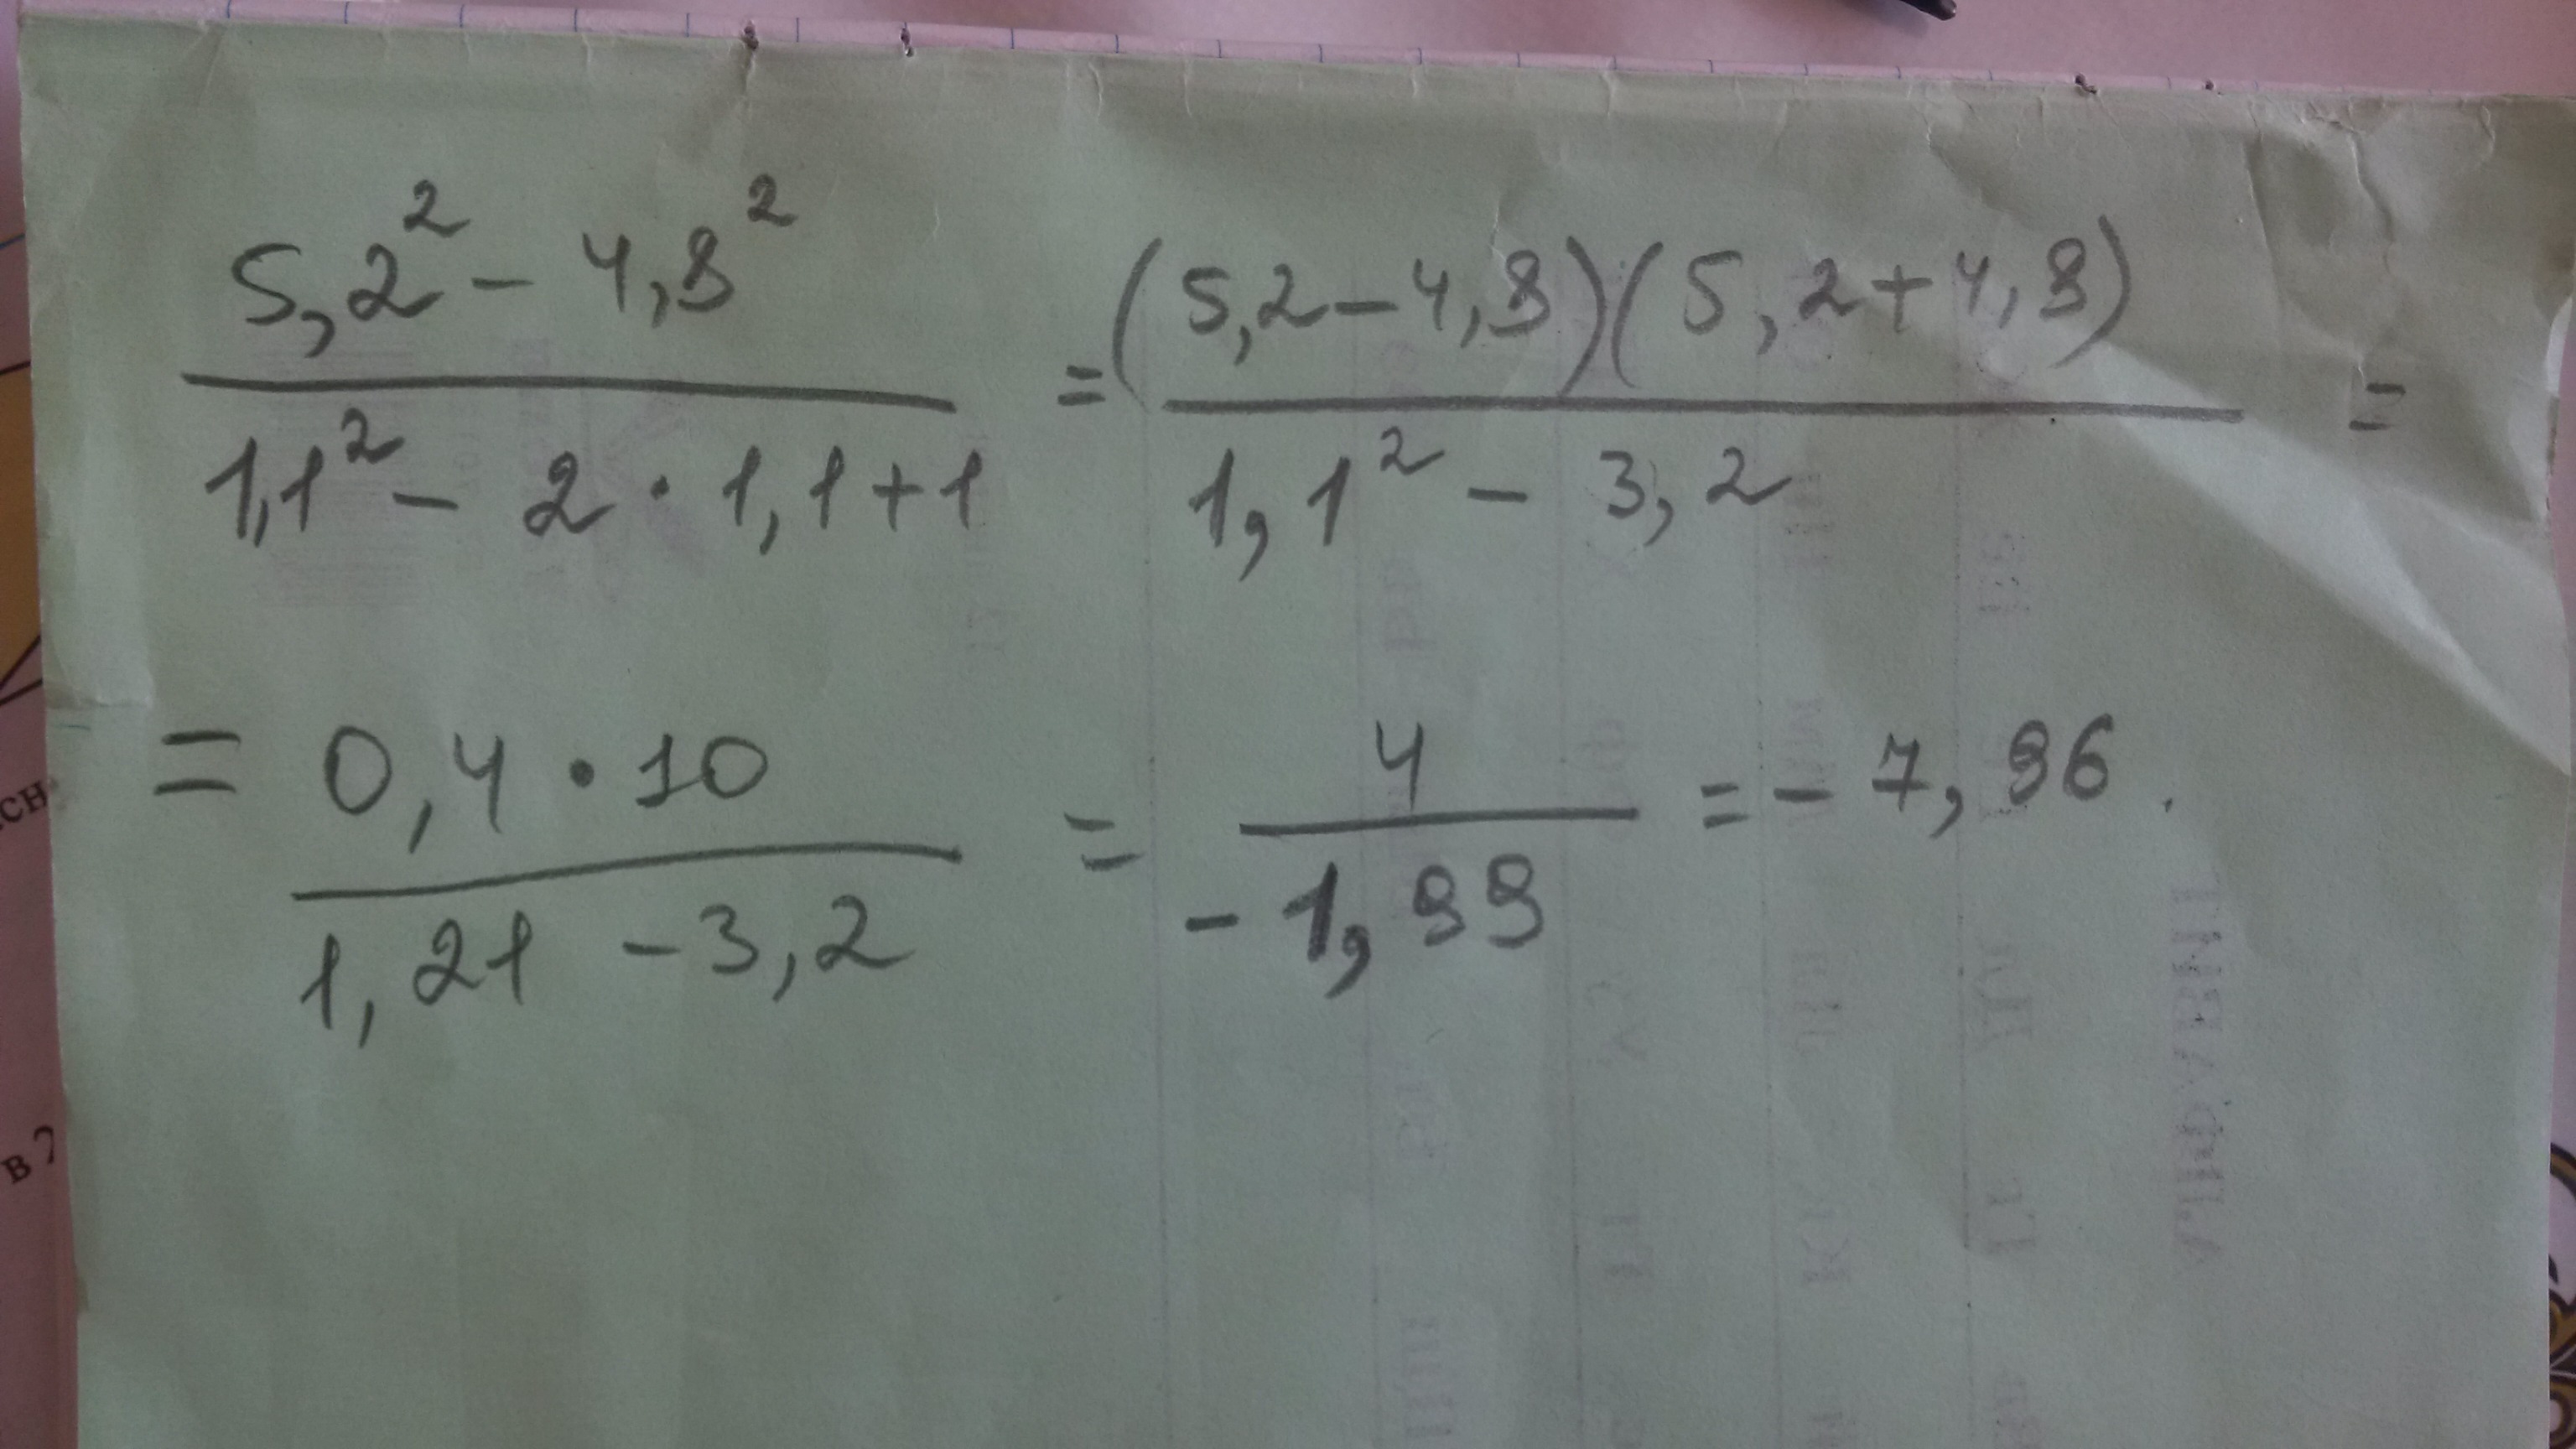 5,2² - 4,8² / 1,1² - 2 · 1,1 + 1 = (5,2 - 4,8)(5,2 + 4,8) / 1,1² - 3,2 =
= 0,4 · 10 / 1,21 - 3,2 = 4 / - 1,99 = - 7,96.
сн
в 7